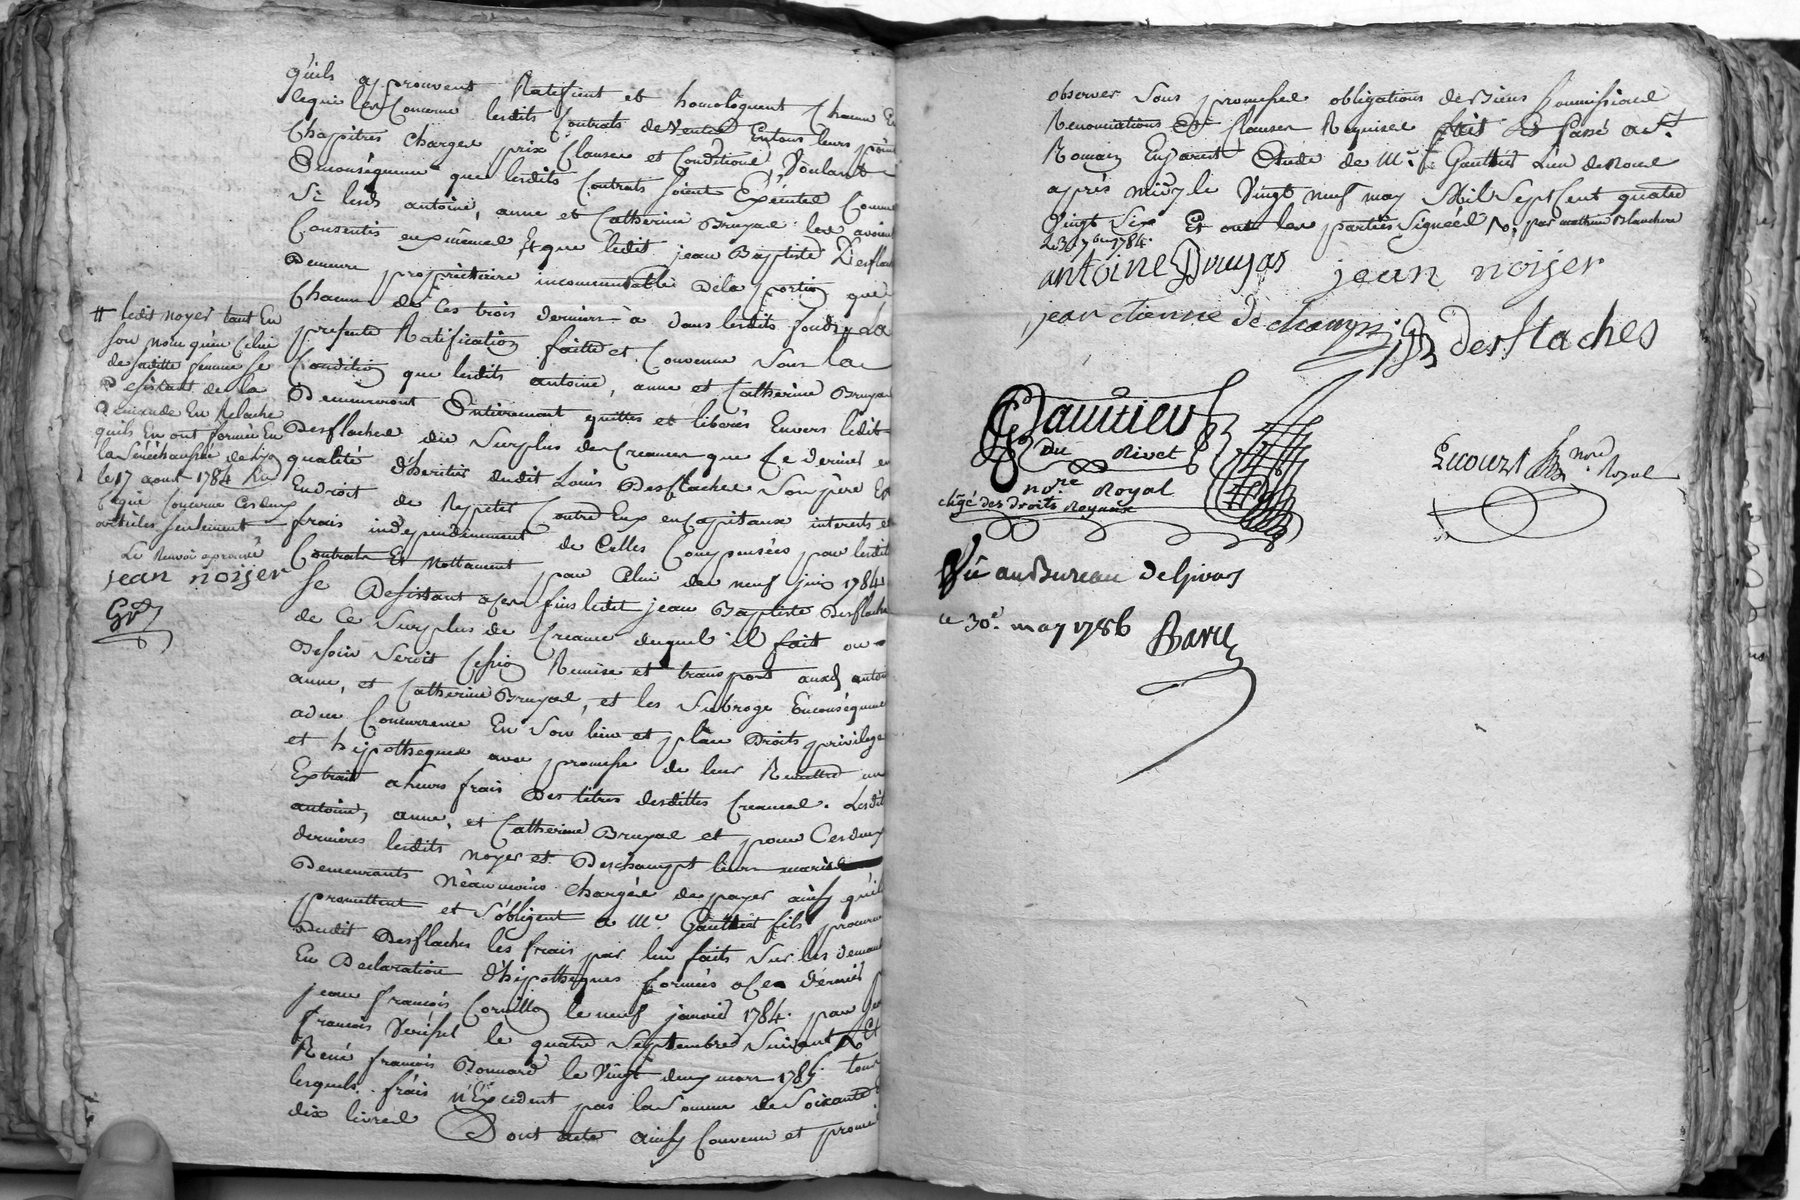 qu'ils approuvent Ratifient et homologuent Chacun En
lequi les Concerne lesdits Contrats de Ventes Entous leurs points
Chapitres Charges prix Clauses et Conditions, Voulant
Enconséquence que lesdits Contrats soient Exécutés Comme
Si lesds antoine, anne et Catherine Bruyas les avoient
Consentis euxmêmes Et que ledit jean Baptiste Desflaches
Demeure propriétaire incommutable dela portion que
Chacun de Ces trois derniers à dans lesdits fonds, La
presente Ratification faitte et Convenue Sous la
Condition que lesdits antoine, anne et Catherine Bruyas
Demeureront Entierement quittes et libérés Envers ledit
Desflaches du Surplus des Creances que Ce dernier en
qualité d'heritier dudit Louis Desflaches Son père Est
Endroit de Repeter Contre Eux en Capitaux interets et
frais independamment de Celles Compensées par lesdits
Contrats Et Nottament par Celui du neuf juin 1784
Se Desistant a Ces fins ledit jean Baptiste Desflaches
de Ce Surplus de Creance duquel il fait ou
Besoin Seroit Cession Remise et transport auxds antoine
anne, et Catherine Bruyas, et les Subroge Enconséquence
adue Concurrence En Son lieu et place Droits privileges
et hypotheques avec promesse de leur Remettre un
Extrait aleurs frais Des titres desdittes Creances. Lesdits
antoine, anne, et Catherine Bruyas et pour Ces deux
dernieres lesdits noyer et Deschampt leurs maris
Demeurants Néanmoins Chargés de payer ainsy qu'ils
promettent et S'obligent a Me. Gaultier fils procureur
dudit Desflaches les frais par lui faits Sur les demandes
En Declaration d'hipotheques formées a Ces dernier
jean françois le neuf janvier 1784. par
françois le quatre Septembre Suivant Et
René françois Bonnard le Vingt deux mars 1785. tous
lesquels frais n'Excedent pas la Somme de Soixante
dix livres Dont acte ainsy Convenu et promis
# ledit noyer tant En
son nom qu'en Celui
de saditte femme se
Desistant de la
demande En Relache
quils En ont formée En
la Sénéchaussée de
le 17 aout 1784 En
Ce qui Concerne Ces deux
articles seulement
Le Renvoi aprouvé
jean noijer
observer Sous promesses obligations de Biens Soumissions
Renonciations Et Clauses Requises fait Et passé a St.
Romain En jarest Etude de Me. Gaultier L'un de Nous
après midy le Vingt neuf may Mil Sept Cent quatre
Vingt Six Et ont les parties Signées par mathieu Blanchon
Le 30 7bre 1784.
antoine Bruyas jean noijer
jean etienne de champ Desflaches
Gaultier
Du Rivet
nore Royal
chgé des droits Royaux
nore Royal
Vû au Bureau de Givors
ce 30e. may 1786